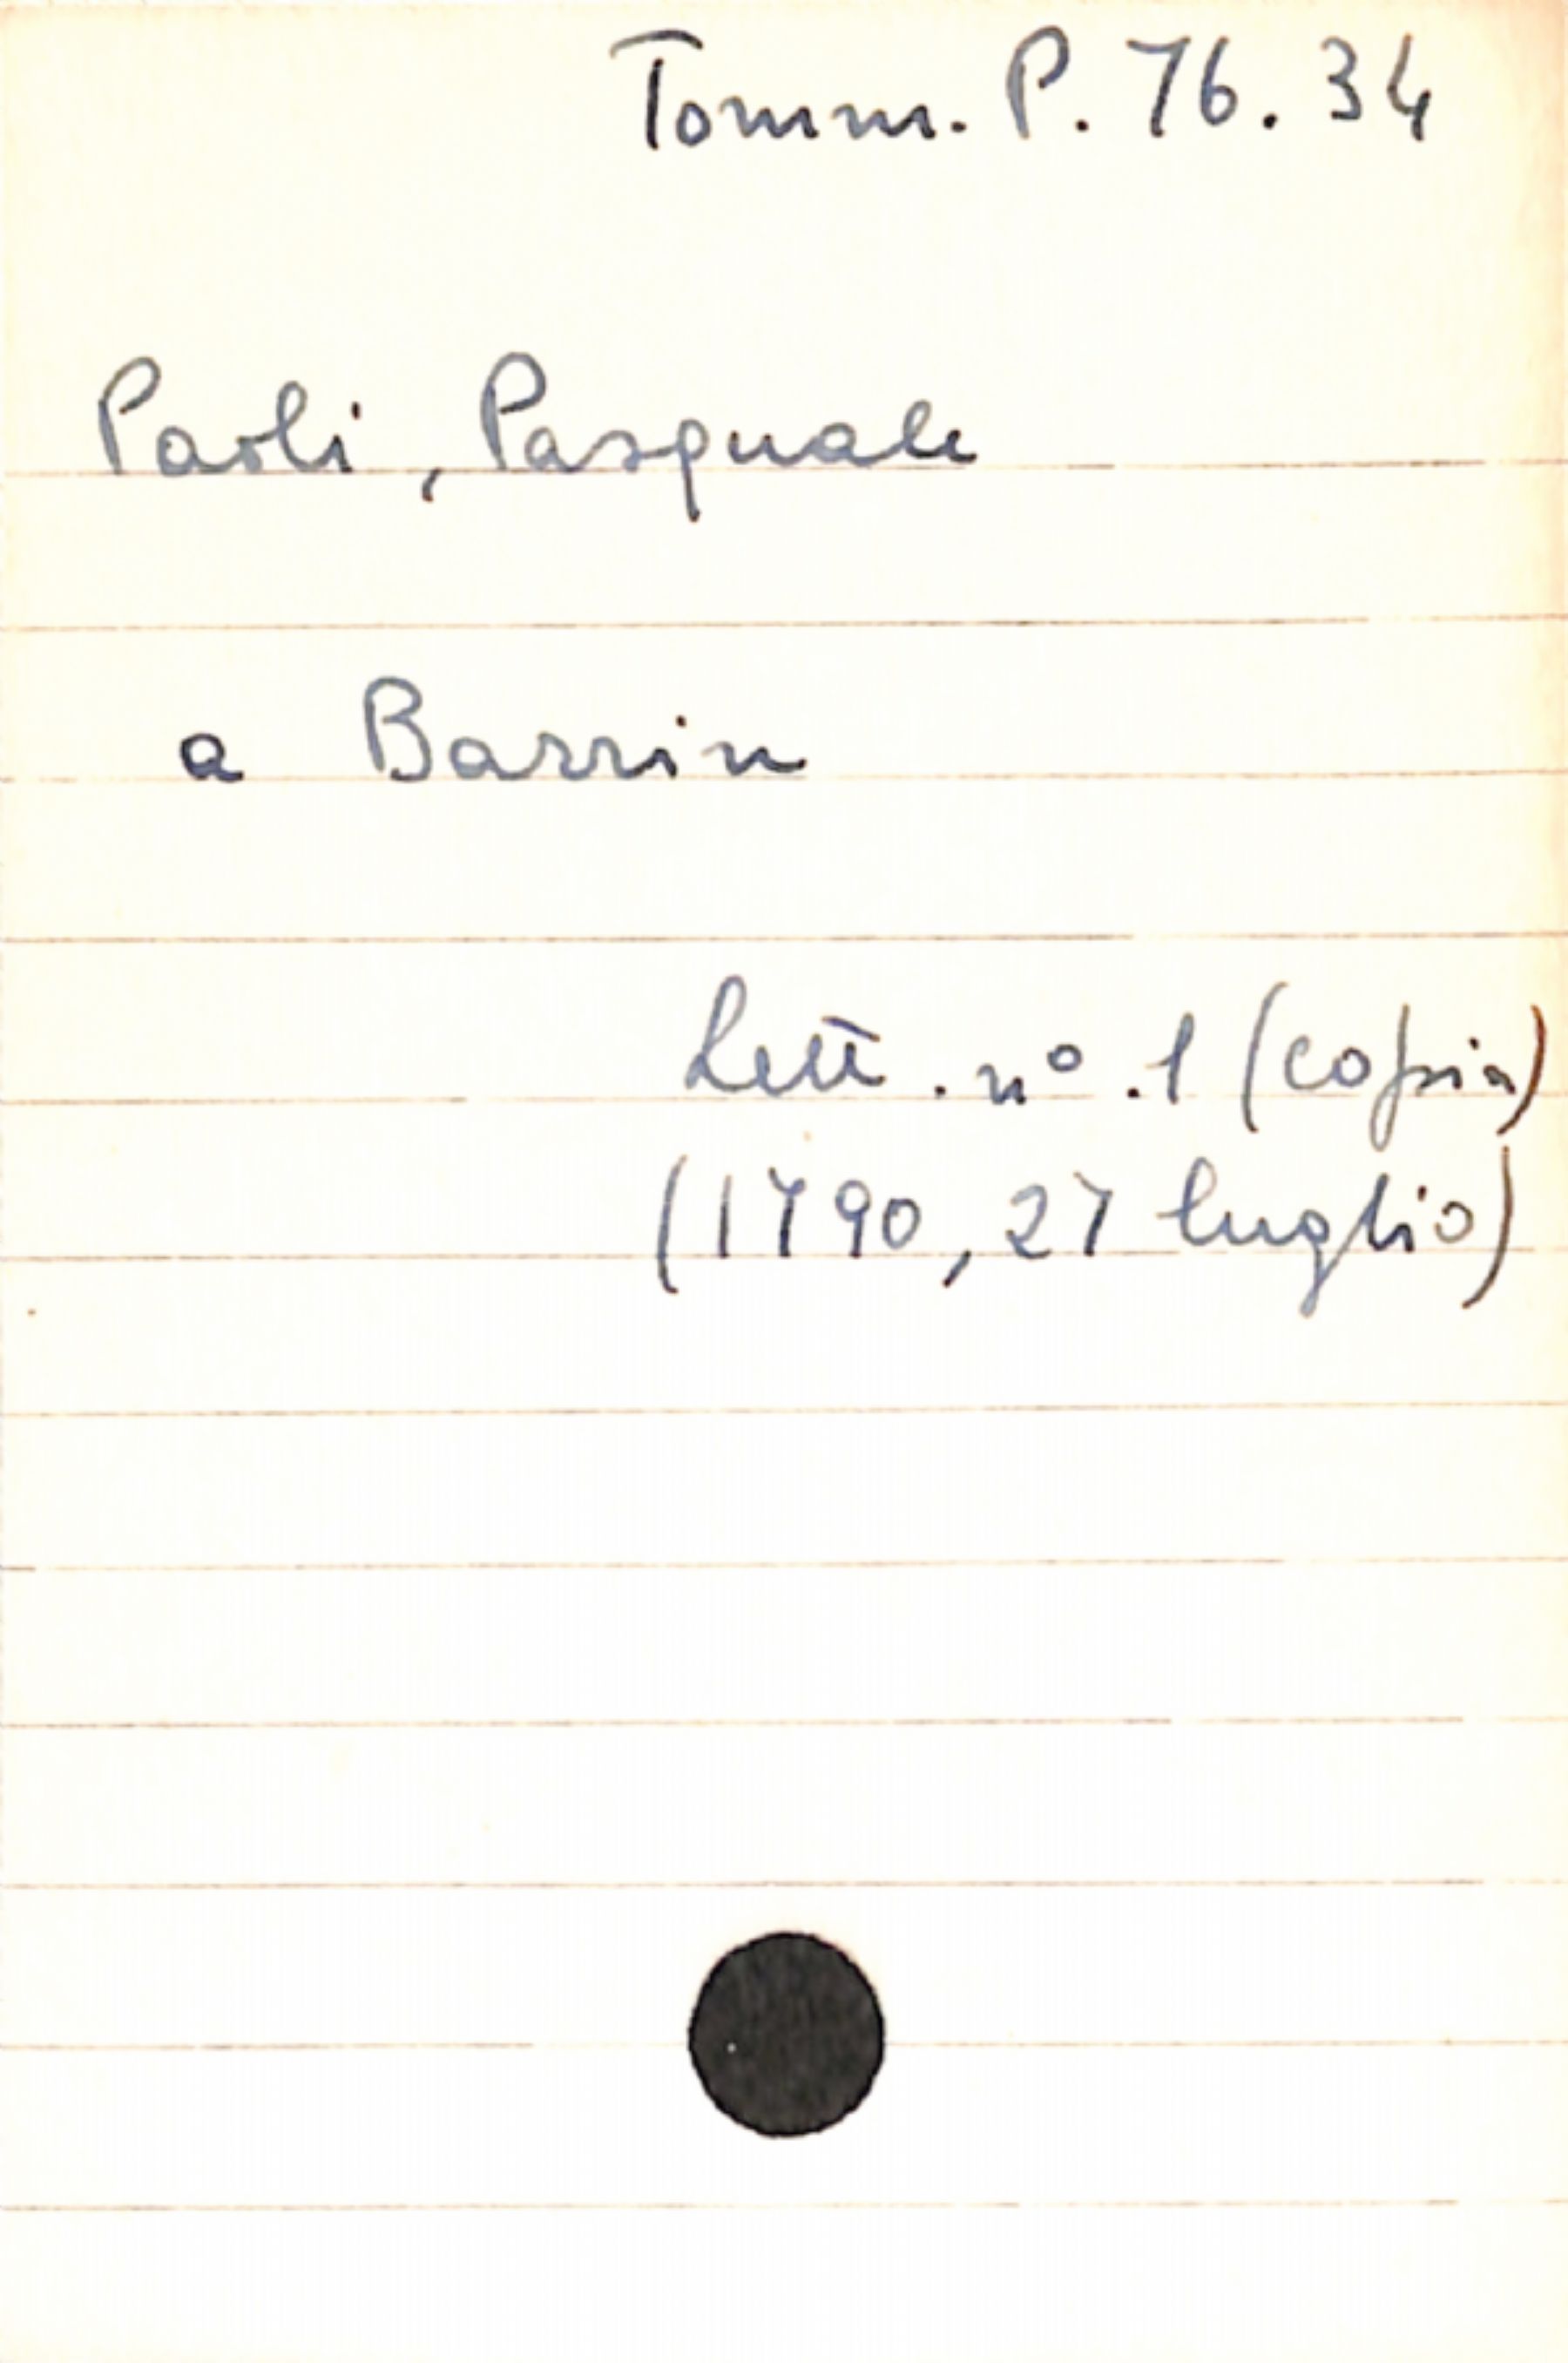 Tomm. P. 76. 34
Paoli, Pasquale
a Barrin
Lett. nº. 1 (copia)
(1790, 27 luglio)